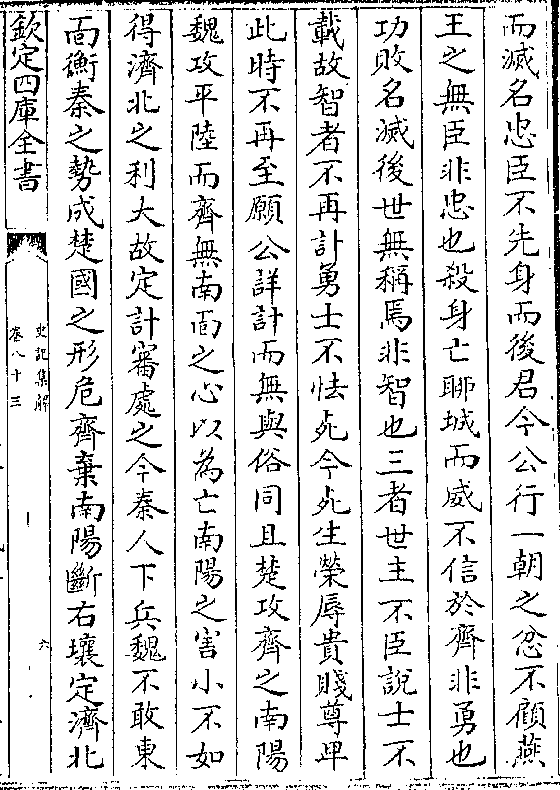 而滅名忠臣不先身而後君今公行一朝之忿不顧燕
王之無臣非忠也殺身亡聊城而威不信於齊非勇也
功敗名滅後世無稱焉非智也三者世主不臣說士不
載故智者不再計勇士不怯死今死生榮辱貴賤尊卑
此時不再至願公詳計而無與俗同且楚攻齊之南陽
魏攻平陸而齊無南面之心以為亡南陽之害小不如
得濟北之利大故定計審處之今秦人下兵魏不敢東
面衡秦之勢成楚國之形危齊棄南陽斷右壤定濟北
欽定四庫全書
史記集解
卷八十三
六